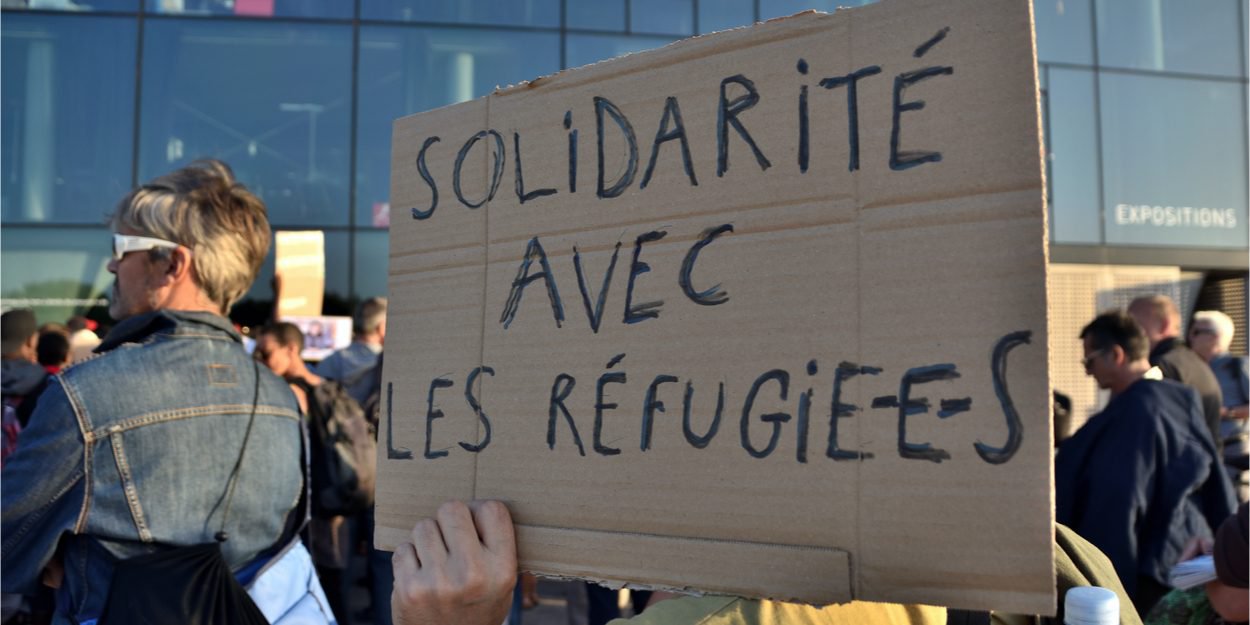 SOLiDARiTÉ
AVEC
LES RÉFUGiE-E-S
EXPOSITIONS